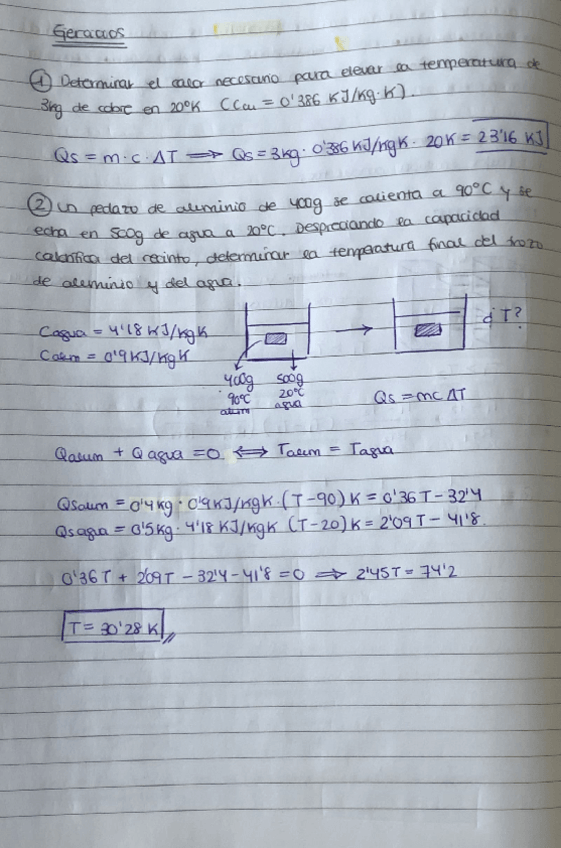 Ejercicios
① Determinar el calor necesario para elevar la temperatura de
3kg de cobre en 20°K (Ccu = 0'386 KJ/kg·K).
Qs = m·c·ΔT ⟹ Qs = 3kg · 0'386 KJ/kgK · 20K = 23'16 KJ
② Un pedazo de aluminio de 400g se calienta a 90°C y se
echa en 500g de agua a 20°C. Despreciando la capacidad
calorífica del recinto, determinar la temperatura final del trozo
de aluminio y del agua.
Cagua = 4'18 KJ/kgK
Calum = 0'9 KJ/kgK
400g
90°C
alum
500g
20°C
agua
¿T?
Qs = mcΔT
Qalum + Qagua = 0 ⟺ Talum = Tagua
Qsalum = 0'4kg · 0'9KJ/kgK · (T-90)K = 0'36T - 32'4
Qsagua = 0'5kg · 4'18 KJ/kgK (T-20)K = 2'09T - 41'8
0'36T + 2'09T - 32'4 - 41'8 = 0 ⟹ 2'45T = 74'2
T = 30'28 K